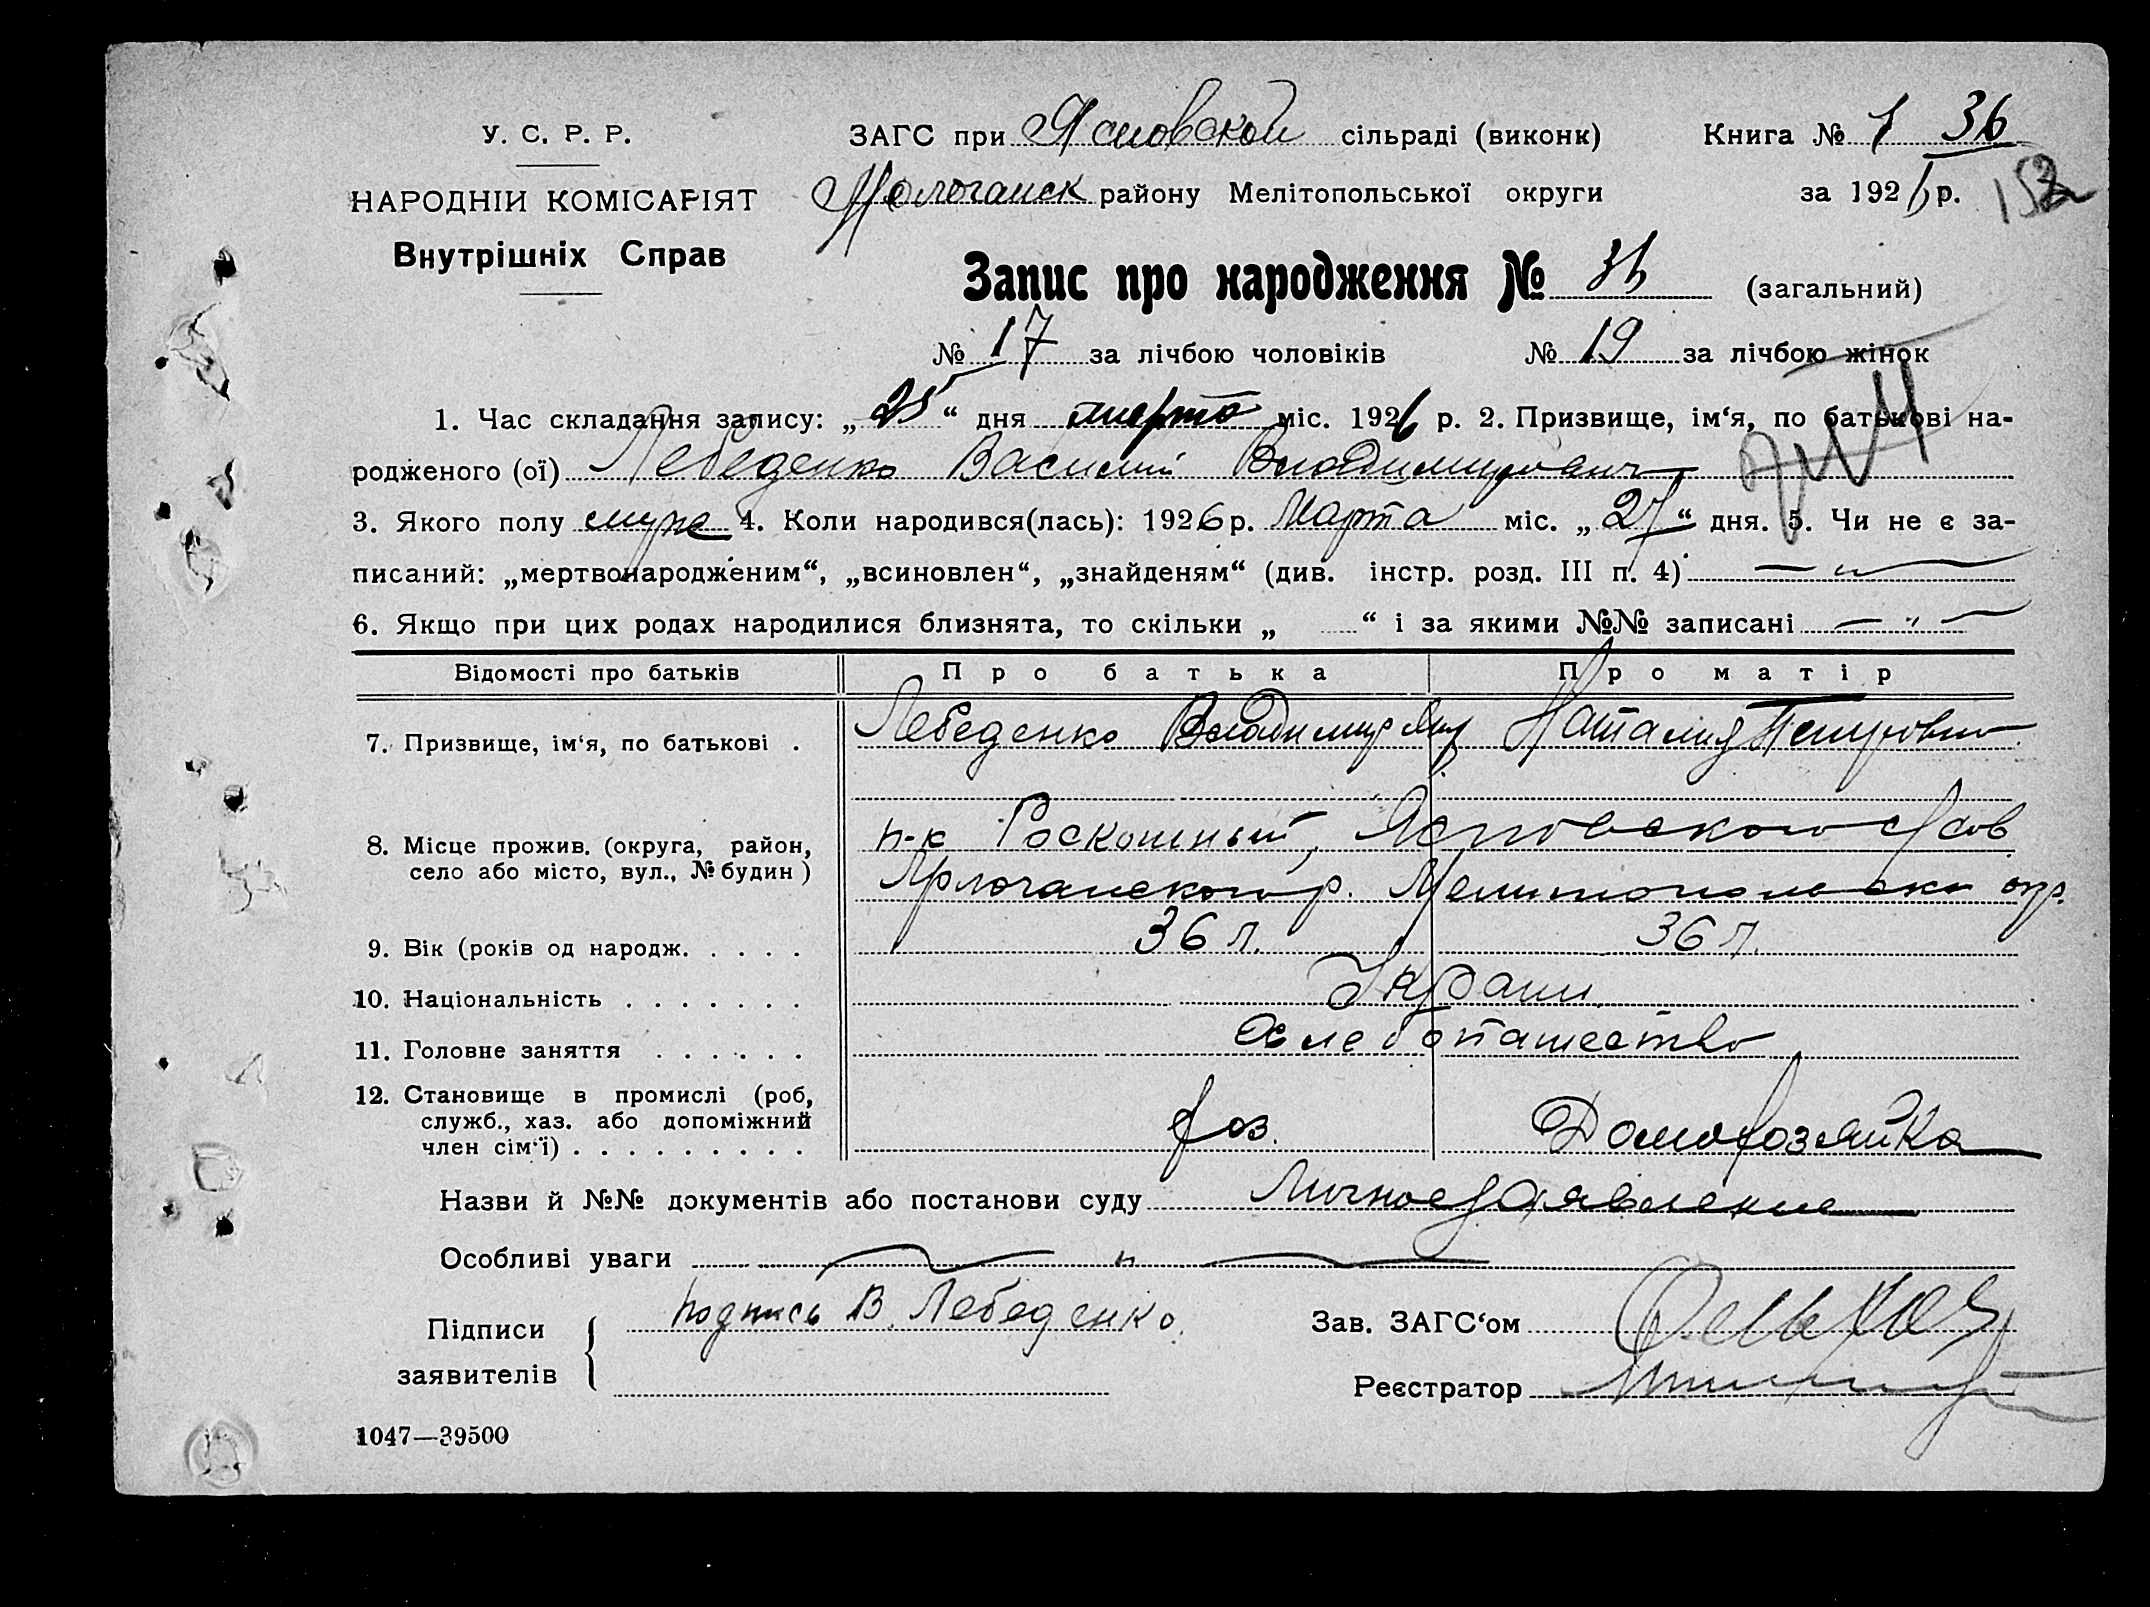 У. С. Р. Р.
НАРОДНІЙ КОМІСАРІЯТ
Внутрішніх Справ
ЗАГС при Ясновской сільраді (виконк) Книга № 1 36
району Мелітопольської округи за 1926 р.
Запис про народження № 36 (загальний)
№ 17 за лічбою чоловіків № 19 за лічбою жінок
1. Час складання запису: „ “ дня марта міс. 1926 р. 2. Призвище, ім‘я, по батькові на-
родженого (ої) Лебеденко Василий Владимирович
3. Якого полу муж 4. Коли народився(лась): 1926 р. Марта міс. „ “ дня. 5. Чи не є за-
писаний: „мертвонародженим“, „всиновлен“, „знайденям“ (див. інстр. розд. III п. 4) — „ —
6. Якщо при цих родах народилися близнята, то скільки „ “ і за якими №№ записані — „ —
Відомості про батьків Про батька Про матір
7. Призвище, ім‘я, по батькові . Лебеденко Владимир Наталия Петровна
8. Місце прожив. (округа, район, село або місто, вул., № будин) п-к Роскошный, Ясновского с/сов
р. Мелитопольск окр.
9. Вік (років од народж. . . . . 36 л. 36 л.
10. Національність . . . . . . .
11. Головне заняття . . . . . . Хлебопашество
12. Становище в промислі (роб, служб., хаз. або допоміжний член сім‘ї) . . . . . . . . . хоз. Домохозяйка
Назви й №№ документів або постанови суду Личное заявление
Особливі уваги — „ —
Підписи заявителів подпись В. Лебеденко.
Зав. ЗАГС‘ом
Реєстратор
1047—39500